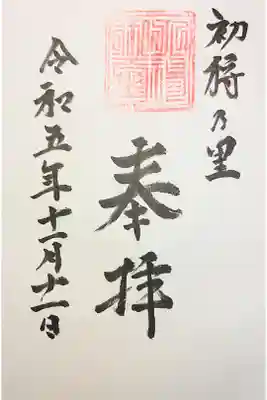 初狩乃里
奉拝
令和五年十一月十一日